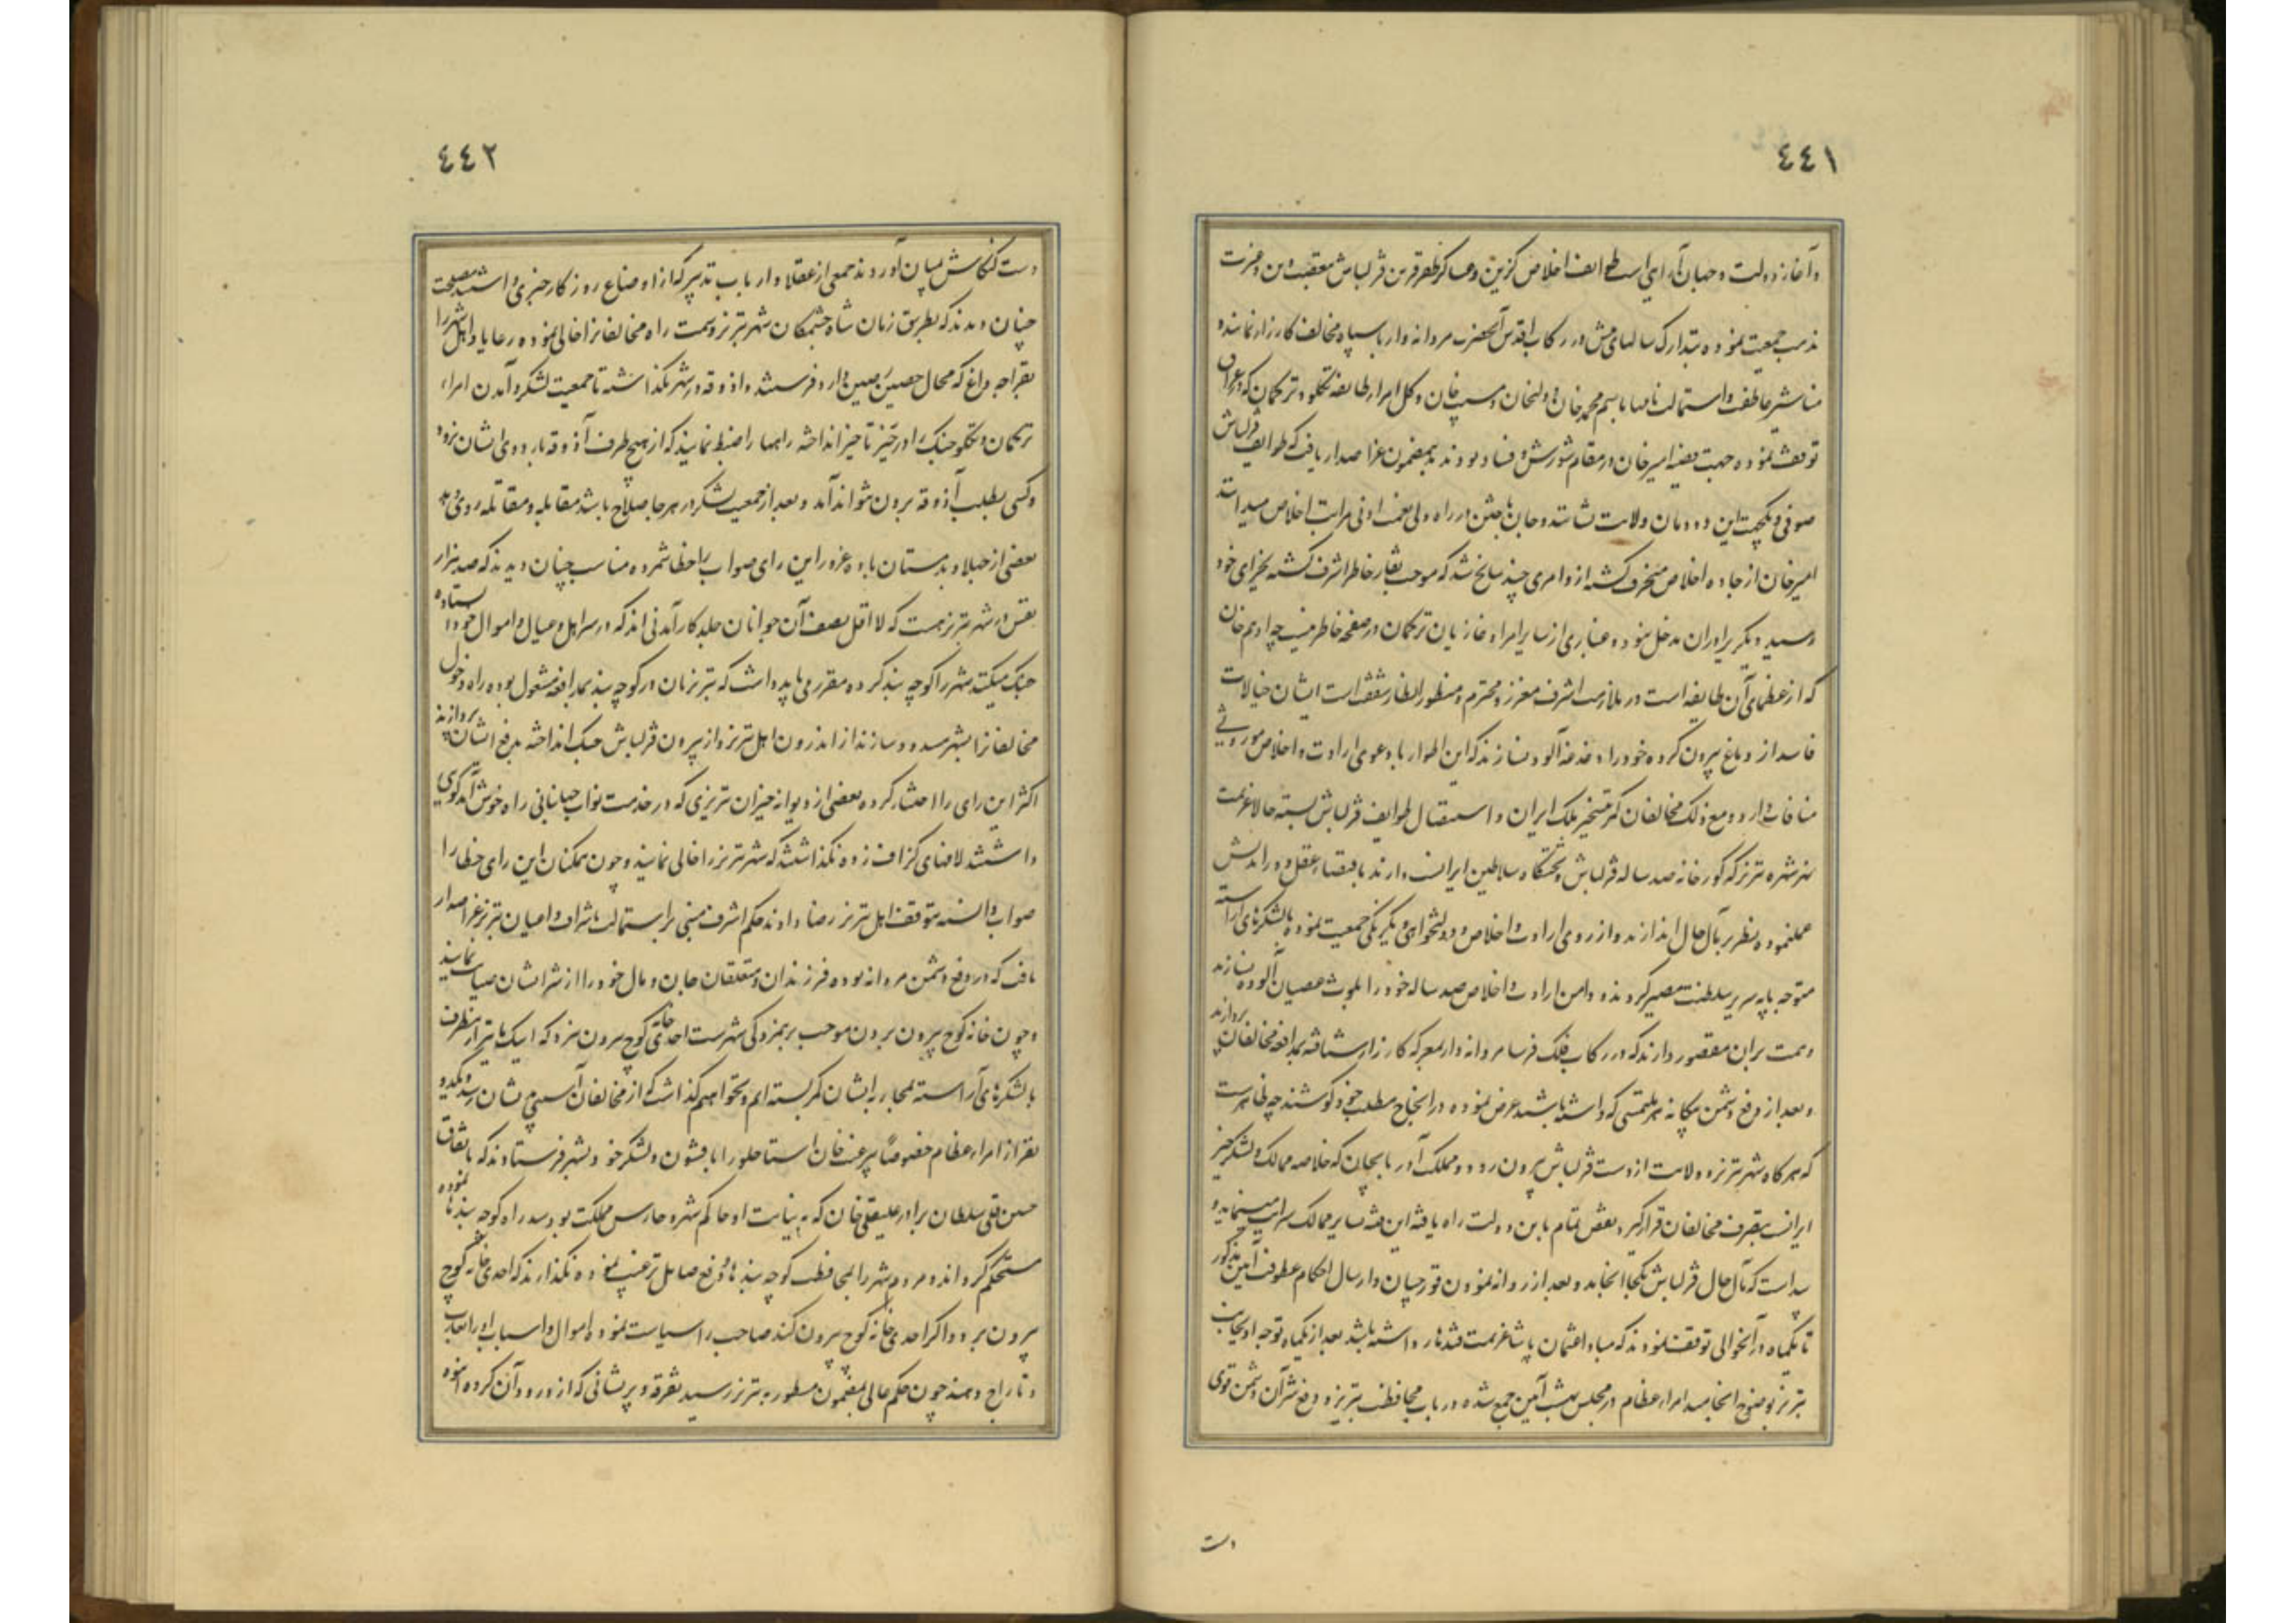 ٤٤١
و آغاز دولت و جهان آرایی است طوایف اخلاص گزین و عساکر ظفر قرین قزلباش متعقب دین و غیرت
مذهب جمعیت نموده بتدارک سالهای پیش در رکاب اقدس آنحضرت مردانه وار با سپاه مخالف کارزار نمایند و
مناشیر عاطفت و استمالت نامها باسم محمد خان و ولیخان و مسیب خان و کل امراء طایفه تکلو و ترکمان که در عراق
توقف نموده جهت قضیه امیر خان در مقام شورش و فساد بودند بمضمون عز اصدار یافت که طوایف قزلباش
صوفی و یکجهت این دودمان ولایت نشانند و جان باختن در راه ولی نعمت ادنی مراتب اخلاص میدانند
امیر خان از جاده اخلاص منحرف گشته از و امری چند سانح شد که موجب نقار خاطر اشرف گشته بجزای خود
رسید دیگر برادران مدخل نبوده غباری از سایر امراء و غازیان ترکمان در صفحه خاطر نیست چه ادهم خان
که از عظمای آن طایفه است در ملازمت اشرف معزز و محترم و منظور انظار شفقت است ایشان خیالات
فاسد از دماغ بیرون کرده خود را دغدغه آلود نسازند که این اطوار با دعوی ارادت و اخلاص موروثی
منافات دارد و مع ذلک مخالفان کمر تسخیر ملک ایران و استیصال طوایف قزلباش بسته حالا عزیمت
شهر تبریز که گورخانه صد ساله قزلباش و تختگاه سلاطین ایرانست دارند باقتضاء عقل دوراندیش
عمل نموده نظر بر مآل حال اندازند و از روی ارادت و اخلاص و دولتخواهی و یکرنگی جمعیت نموده با لشکرهای آراسته
متوجه پایه سریر سلطنت مصیر گردند و دامن ارادت و اخلاص صد ساله خود را بلوث عصیان آلوده نسازند
و همت بران مقصور دارند که در رکاب فلک فرسا مردانه وار بمعرکه کارزار شتافته بمدافعه مخالفان پردازند
و بعد از رفع دشمن بیگانه هر ملتمسی که داشته باشند عرض نموده در انجاح مطلب خود کوشند چه ظاهرست
که هر گاه شهر تبریز و ولایت از دست قزلباش بیرون رود و مملکت آذربایجان که خلاصه ممالک و لشکرخیز
ایرانست بتصرف مخالفان قرار گیرد نقص تمام باین دولت راه یافته این فتنه بسایر ممالک سرایت مینماید و
پیداست که مآل حال قزلباش بکجا انجامد و بعد از روانه نمودن قورچیان و ارسال احکام عطوفت آیین مذکور
تا یکماه در آنحوالی توقف نمودند که مبادا عثمان پاشا عزیمت قندهار داشته باشد بعد از یکماه توجه او بجانب
تبریز بوضوح انجامید امراء عظام در مجلس بهشت آیین جمع شده در باب محافظت تبریز و رفع شر آن دشمن قوی
دست
٤٤٢
دست کنکاش بمیان آوردند جمعی از عقلا و ارباب تدبیر که از اوضاع روزگار خبری داشتند مصلحت
چنان دیدند که بطریق زمان شاه جنت مکان شهر تبریز و سمت راه مخالفانرا خالی نموده رعایا و اهل شهر را
بقراجه داغ که محال حصین متین دارد فرستند و آذوقه در شهر نگذاشته تا جمعیت لشکر و آمدن امراء
ترکمان و تکلو جنگ را در حیز تاخیر انداخته راهها را ضبط نمایند که از هیچ طرف آذوقه باردوی ایشان نرود
و کسی بطلب آذوقه بیرون نتواند آمد و بعد از جمعیت لشکر در هر جا صلاح باشد مقابله و مقاتله روی دهد
بعضی از جهلا و بدمستان باده غرور این رای صواب را خطا شمرده مناسب چنان دیدند که صد هزار
نفس در شهر تبریز هست که لا اقل نصف آن جوانان جلد کارآمدنی اند که در سر اهل و عیال و اموال خود ایستاده
جنگ میکنند شهر را کوچه بند کرده مقرر می باید داشت که تبریزیان در کوچه بند بمدافعه مشغول بوده راه دخول
مخالفانرا بشهر مسدود سازند از اندرون اهل تبریز و از بیرون قزلباش جنگ انداخته بدفع ایشان پردازند
اکثر این رای را اختیار کرده بعضی از دیوانه خیزان تبریزی که در خدمت نواب جهانبانی راه خوش آمد گویی
داشتند لافهای گزاف زده نگذاشتند که شهر تبریز را خالی نمایند و چون همگنان این رای خطا را
صواب دانسته بتوقف اهل تبریز رضا دادند حکم اشرف مبنی بر استمالت باشراف و اعیان تبریز عز اصدار
یافت که در دفع دشمن مردانه بوده فرزندان و متعلقان جان و مال خود را از شر ایشان صیانت نمایند
و چون خانه کوچ بیرون بردن موجب برهمزدگی شهرست احدی خانه کوچ بیرون نبرد که اینک ما نیز از اینطرف
با لشکرهای آراسته بمحاربه ایشان کمر بسته ایم و نخواهیم گذاشت که از مخالفان آسیبی بشان رسد و یکدو
نفر از امراء عظام خصوصا پیر غیب خان استاجلو را با قشون و لشکر خود بشهر فرستادند که باتفاق
حسن قلی سلطان برادر علیقلی خان که به نیابت او حاکم شهر و حارس مملکت بود سد راه کوچه بندها نموده
مستحکم گردانند و مردم شهر را بمحافظت کوچه بندها و دفع صایل ترغیب نموده نگذارند که احدی خانه کوچ
بیرون برد و اگر احدی خانه کوچ بیرون کند صاحب را سیاست نموده اموال و اسباب او را بغارت
و تاراج دهند چون حکم عالی بمضمون مسطور به تبریز رسید تفرقه و پریشانی که از ورود آن گروه انبوه